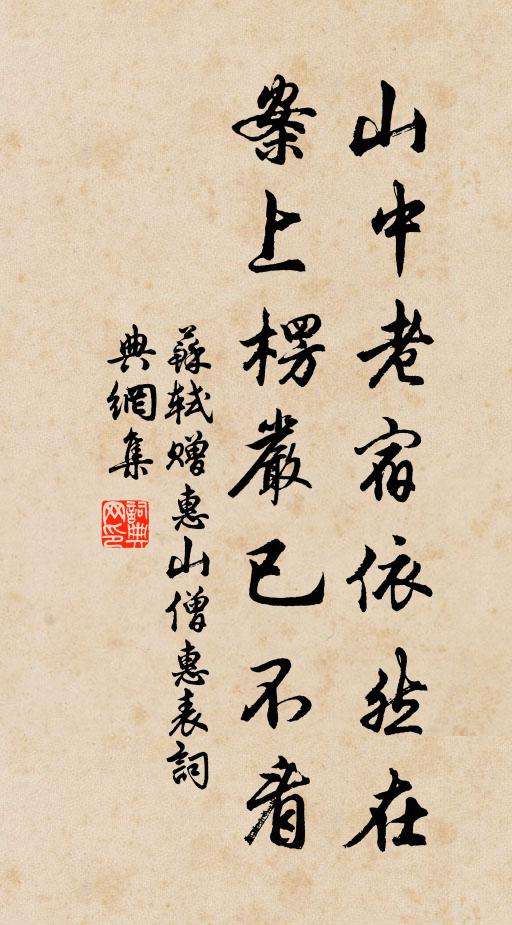 山中老宿依然在
案上楞嚴已不看
蘇軾赠惠山僧惠表詞
典網集
詞典
网印